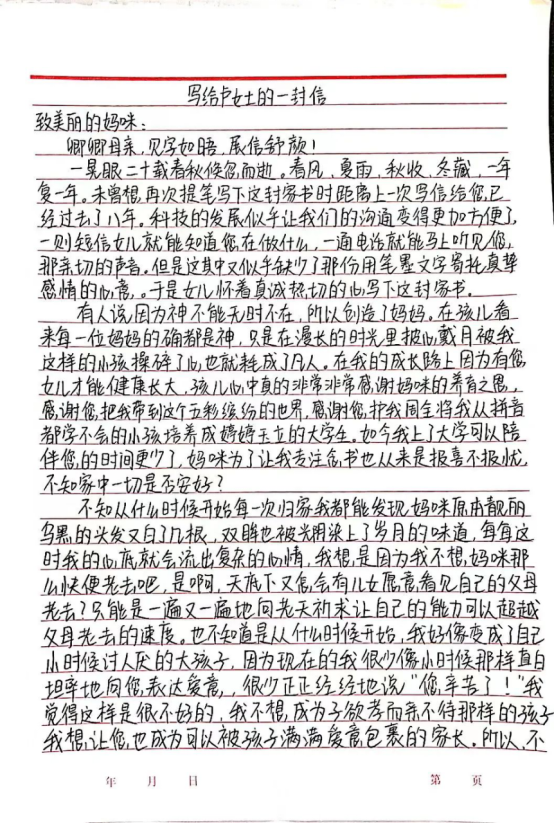 写给卢女士的一封信
致美丽的妈咪：
卿卿母亲，见字如晤，展信舒颜！
一晃眼二十载春秋倏忽而逝。春风，夏雨，秋收，冬藏，一年
复一年。未曾想，再次提笔写下这封家书时距离上一次写信给您，已
经过去了八年。科技的发展似乎让我们的沟通变得更加方便了，
一则短信女儿就能知道您在做什么，一通电话就能马上听见您，
那亲切的声音。但是这其中又似乎缺少了那份用笔墨文字寄托真挚
感情的心意，。于是女儿怀着真诚热切的心写下这封家书。
有人说，因为神不能无时不在，所以创造了妈妈。在孩儿看
来每一位妈妈的确都是神，只是在漫长的时光里披心戴月被我
这样的小孩操碎了心也就耗成了凡人。在我的成长路上因为有您，
女儿才能健康长大，孩儿心中真的非常非常感谢妈咪的养育之恩，
感谢您把我带到这个五彩缤纷的世界，感谢您，护我周全将我从拼音
都学不会的小孩培养成婷婷玉立的大学生。如今我上了大学可以陪
伴您的时间更少了，妈咪为了让我专注念书也从来是报喜不报忧，
不知家中一切是否安好？
不知从什么时候开始每一次归家我都能发现，妈咪原本靓丽
乌黑的头发又白了几根，双眸也被光阴染上了岁月的味道，每每这
时我的心底就会流出复杂的心情，我想，是因为我不想，妈咪那
么快便老去吧，是啊，天底下又怎会有儿女愿意看见自己的父母
老去？只能是一遍又一遍地向老天祈求让自己的能力可以超越
父母老去的速度。也不知道是从什么时候开始，我好像变成了自己
小时候讨人厌的大孩子，因为现在的我很少像小时候那样直白
坦率地向您，表达爱意，，很少正正经经地说“您，辛苦了！”我
觉得这样是很不好的，我不想，成为子欲孝而亲不待那样的孩子
我想，让您，也成为可以被孩子满满爱意包裹的家长。所以，不
年 月 日
第 页